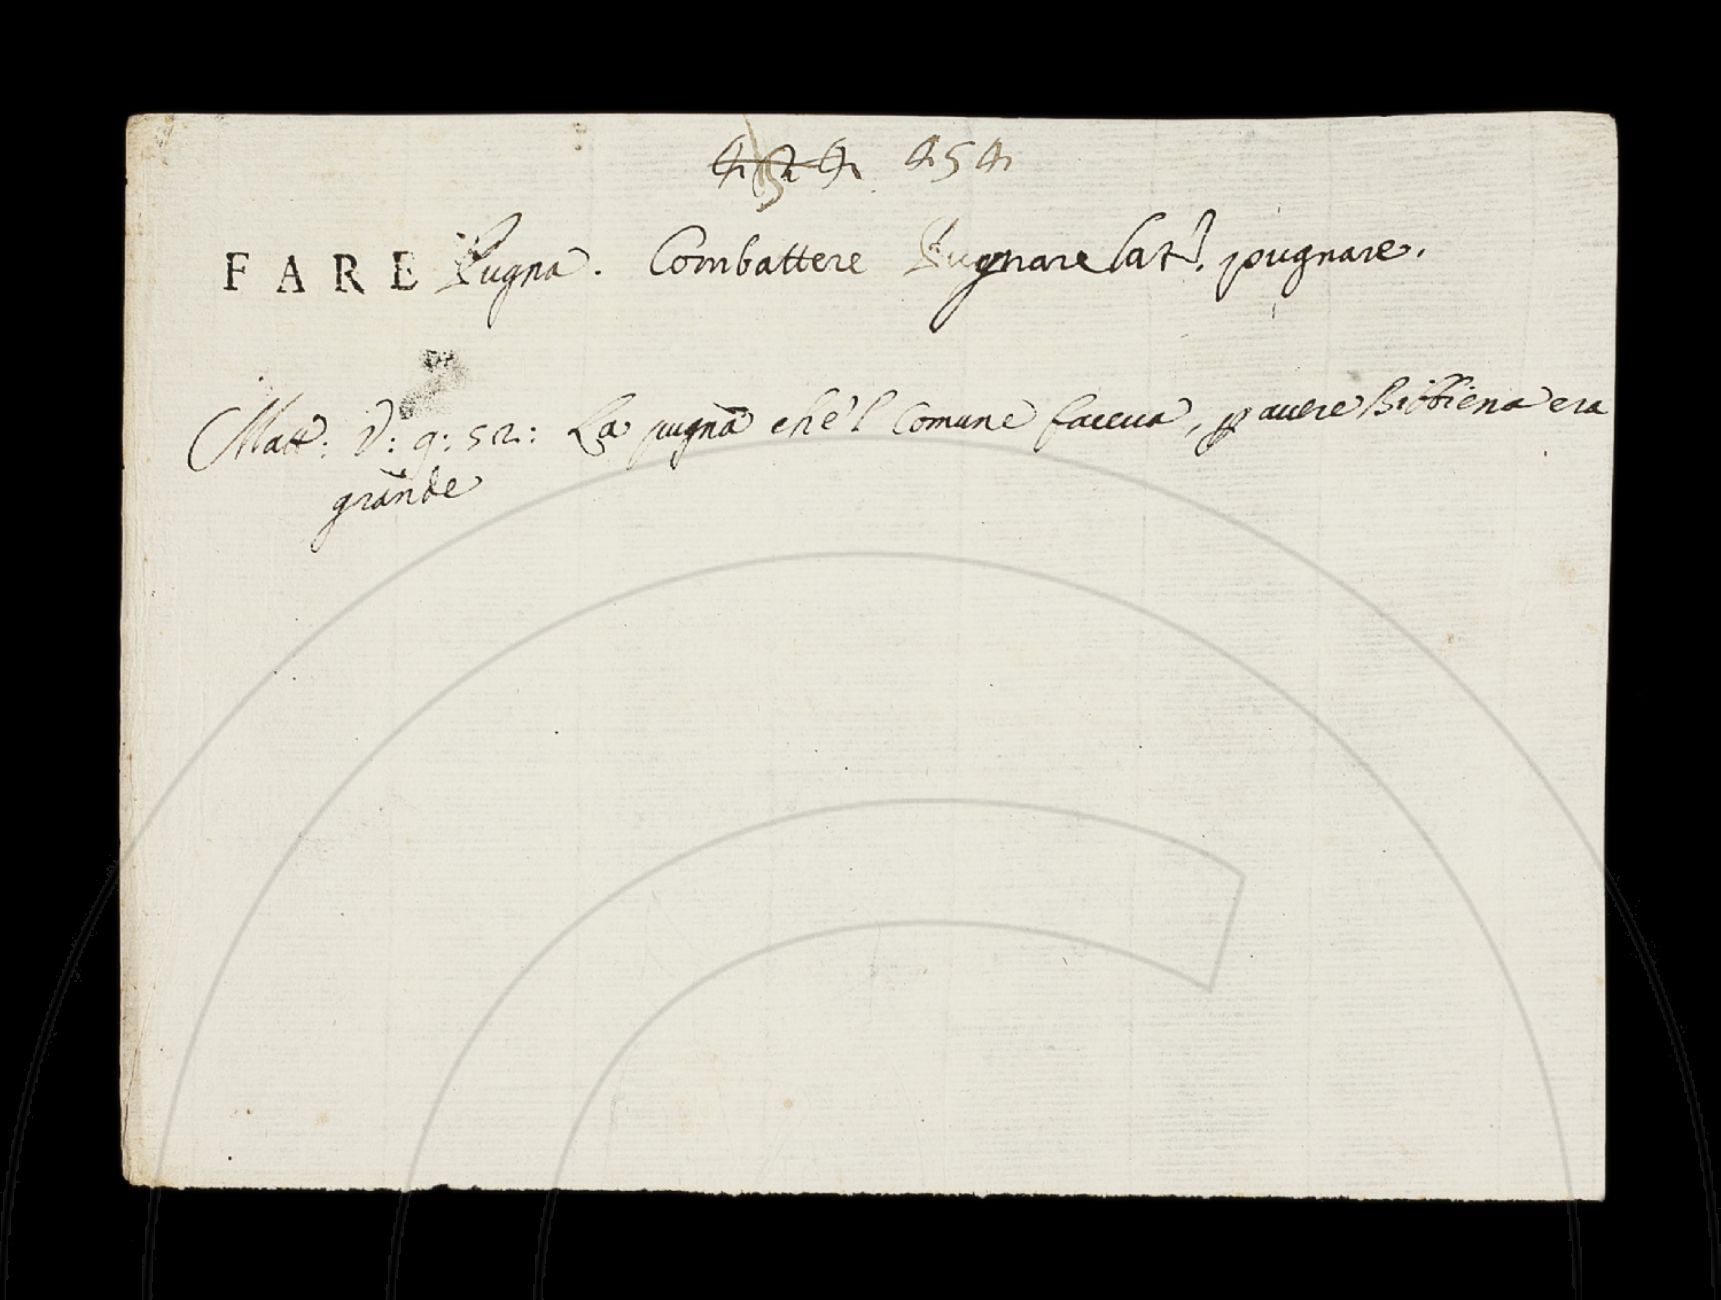 424 454
FARE Pugna. Combattere Pugnare lat. pugnare.
Matt: V: 9: 52: La pugna che'l Comune faceua, p auere Bibbiena era
grande